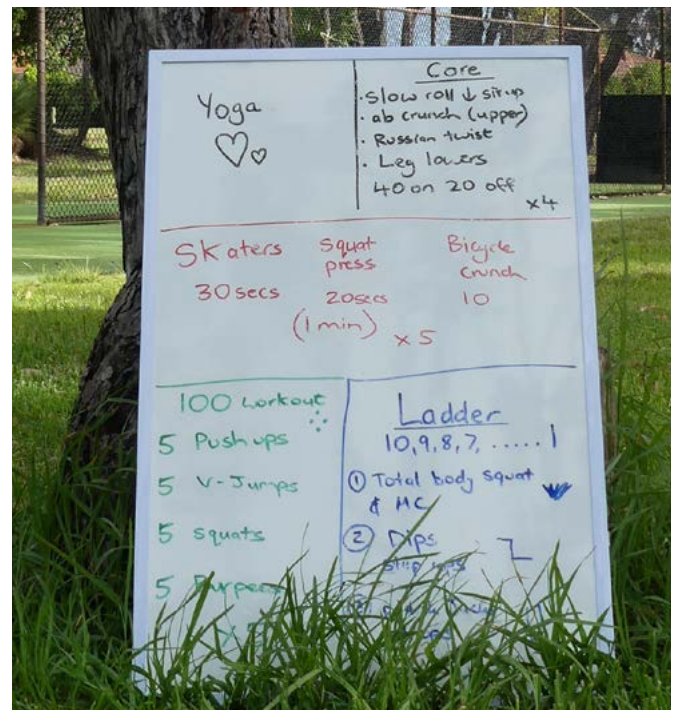 Yoga
Core
· Slow roll ↓ sit up
· ab crunch (upper)
· Russian twist
· Leg lowers
40 on 20 off
x4
Skaters Squat press Bicycle crunch
30 secs 20secs 10
(1 min) x 5
100 workout
5 Push ups
5 V-Jumps
5 squats
5 Burpees
Ladder
10,9,8,7,......1
① Total body squat
& MC
② Dips
step ups